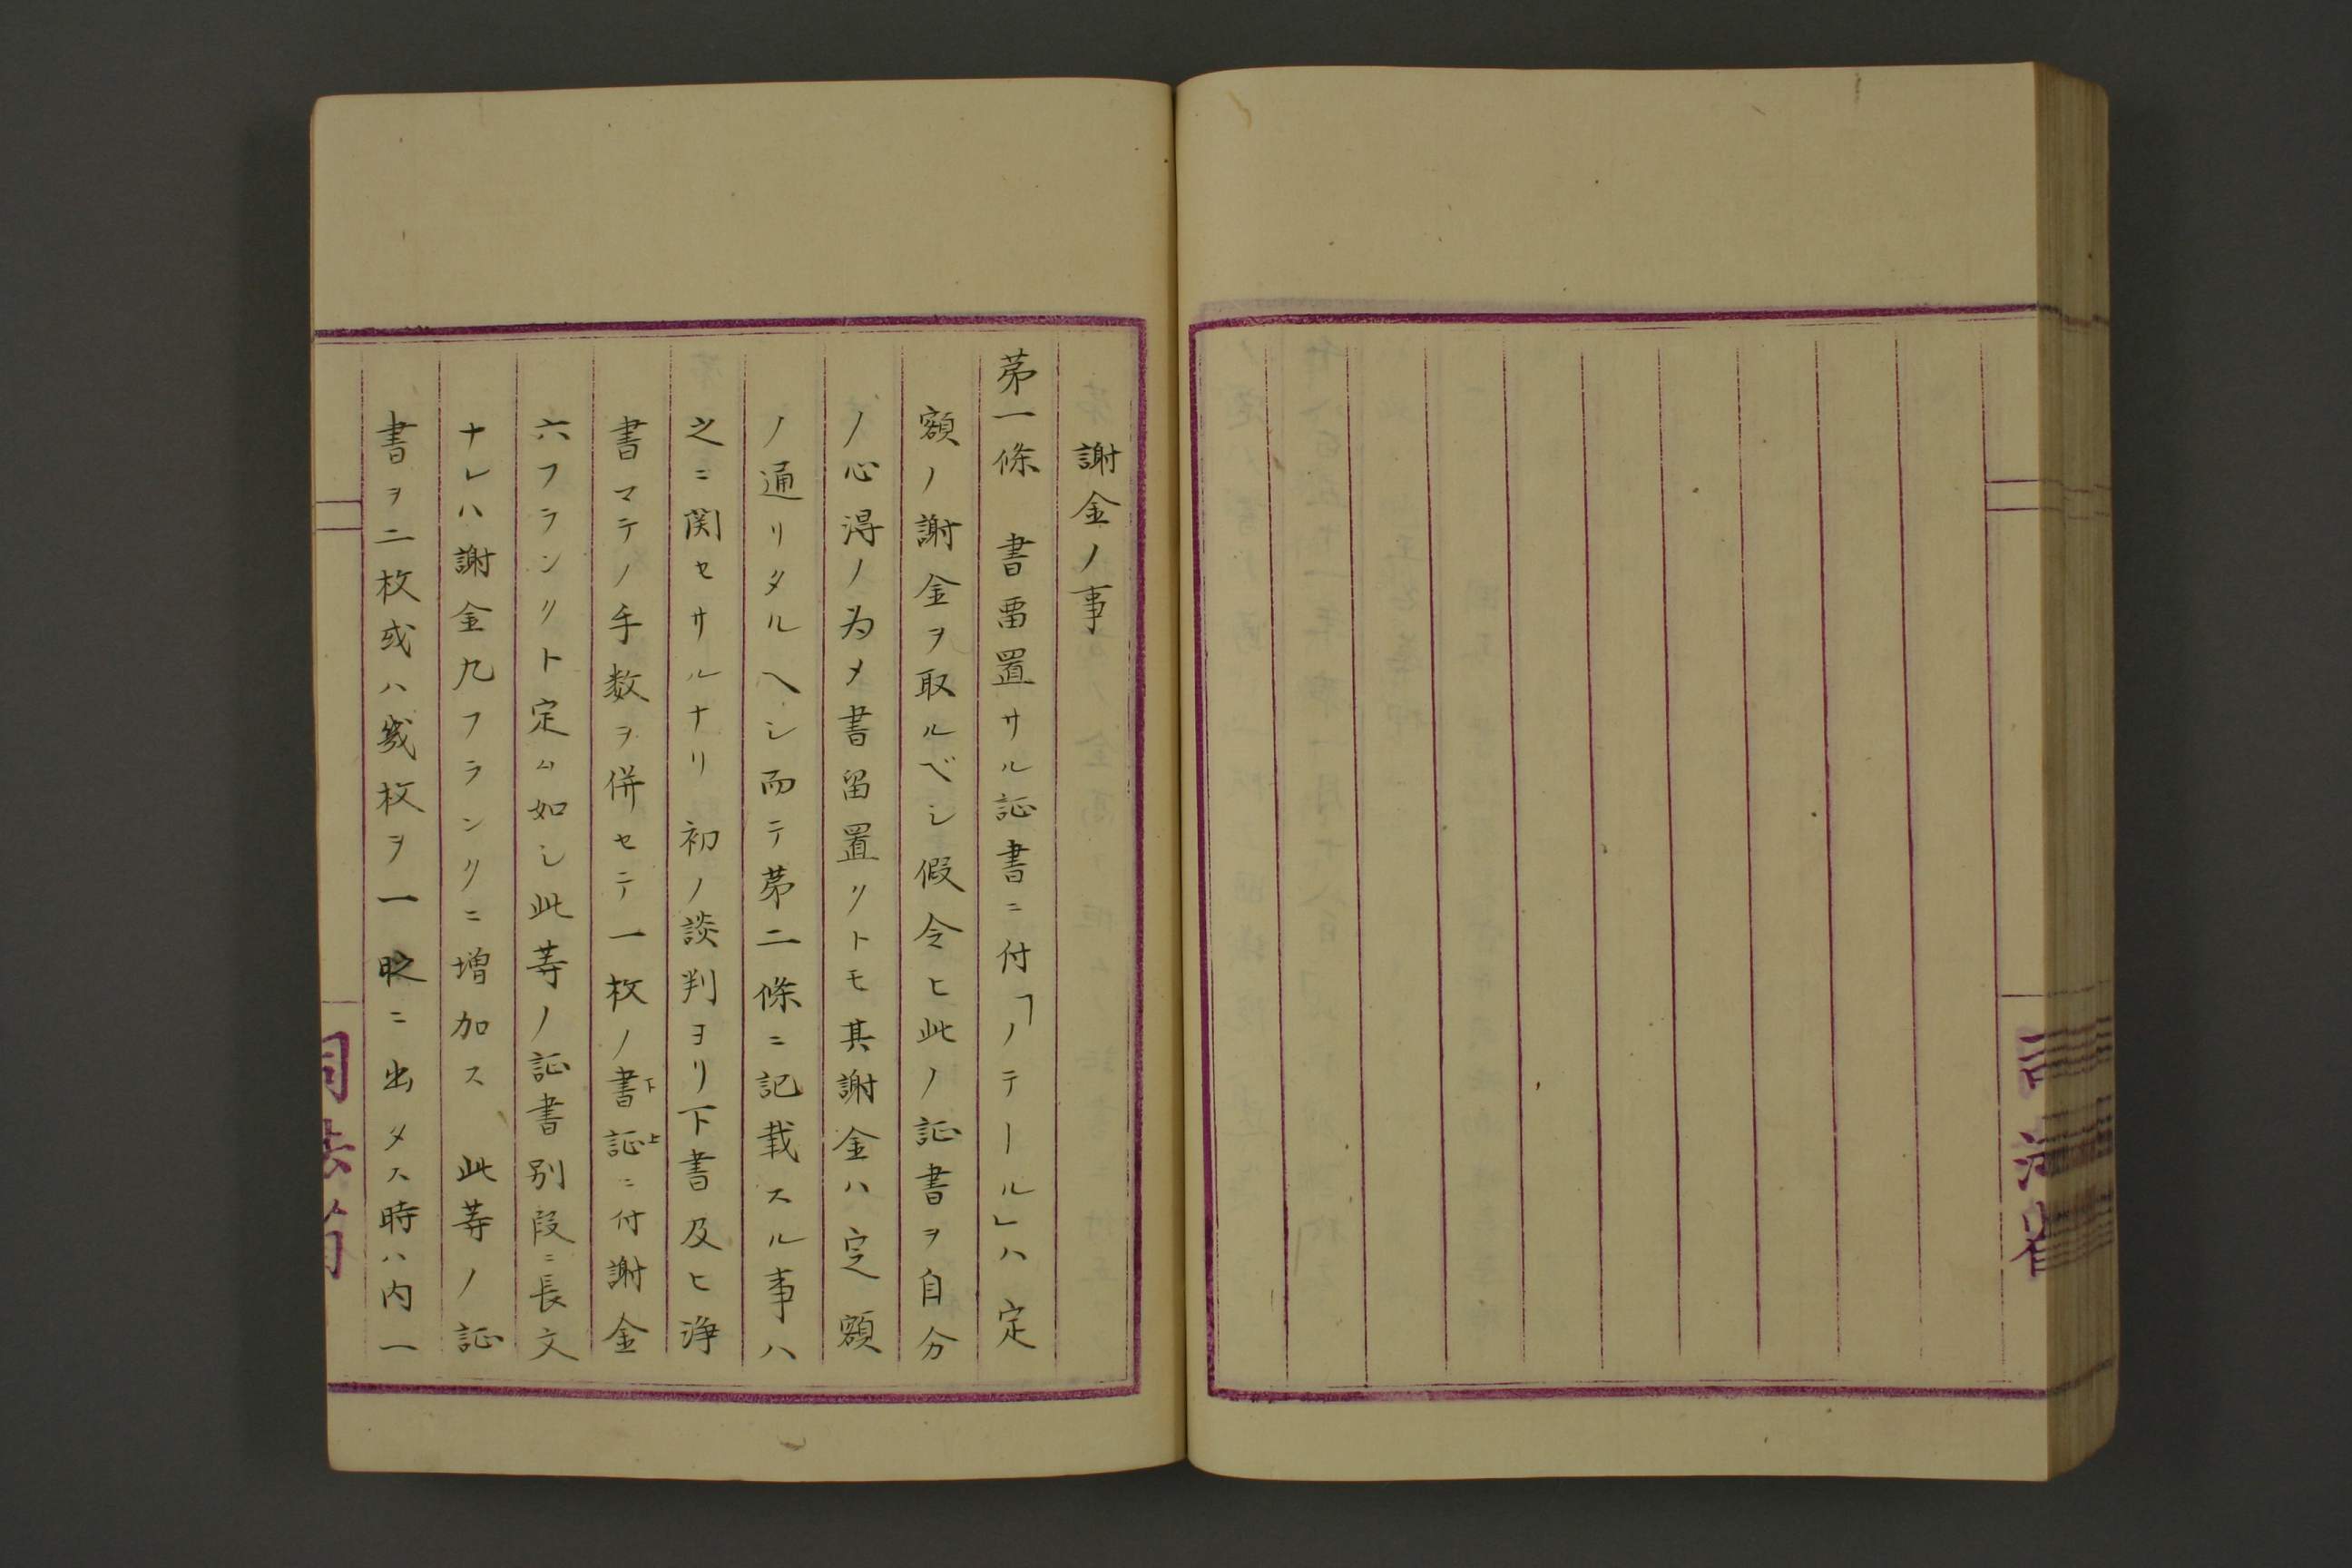 謝金ノ事
第一條　書畱置サル証書ニ付「ノテール」ハ定
額ノ謝金ヲ取ルベシ假令ヒ此ノ証書ヲ自分
ノ心得ノ為メ書留置クトモ其謝金ハ定額
ノ通リタルヘシ而テ第二條ニ記載スル事ハ
之ニ関セサルナリ　初ノ談判ヨリ下書及ヒ浄
書マテノ手数ヲ併セテ一枚ノ書下証上ニ付謝金
六フランクト定ム如シ此等ノ証書別段ニ長文
ナレハ謝金九フランクニ増加ス　此等ノ証
書ヲ二枚或ハ幾枚ヲ一時ニ出タス時ハ内一
司法省
司法省